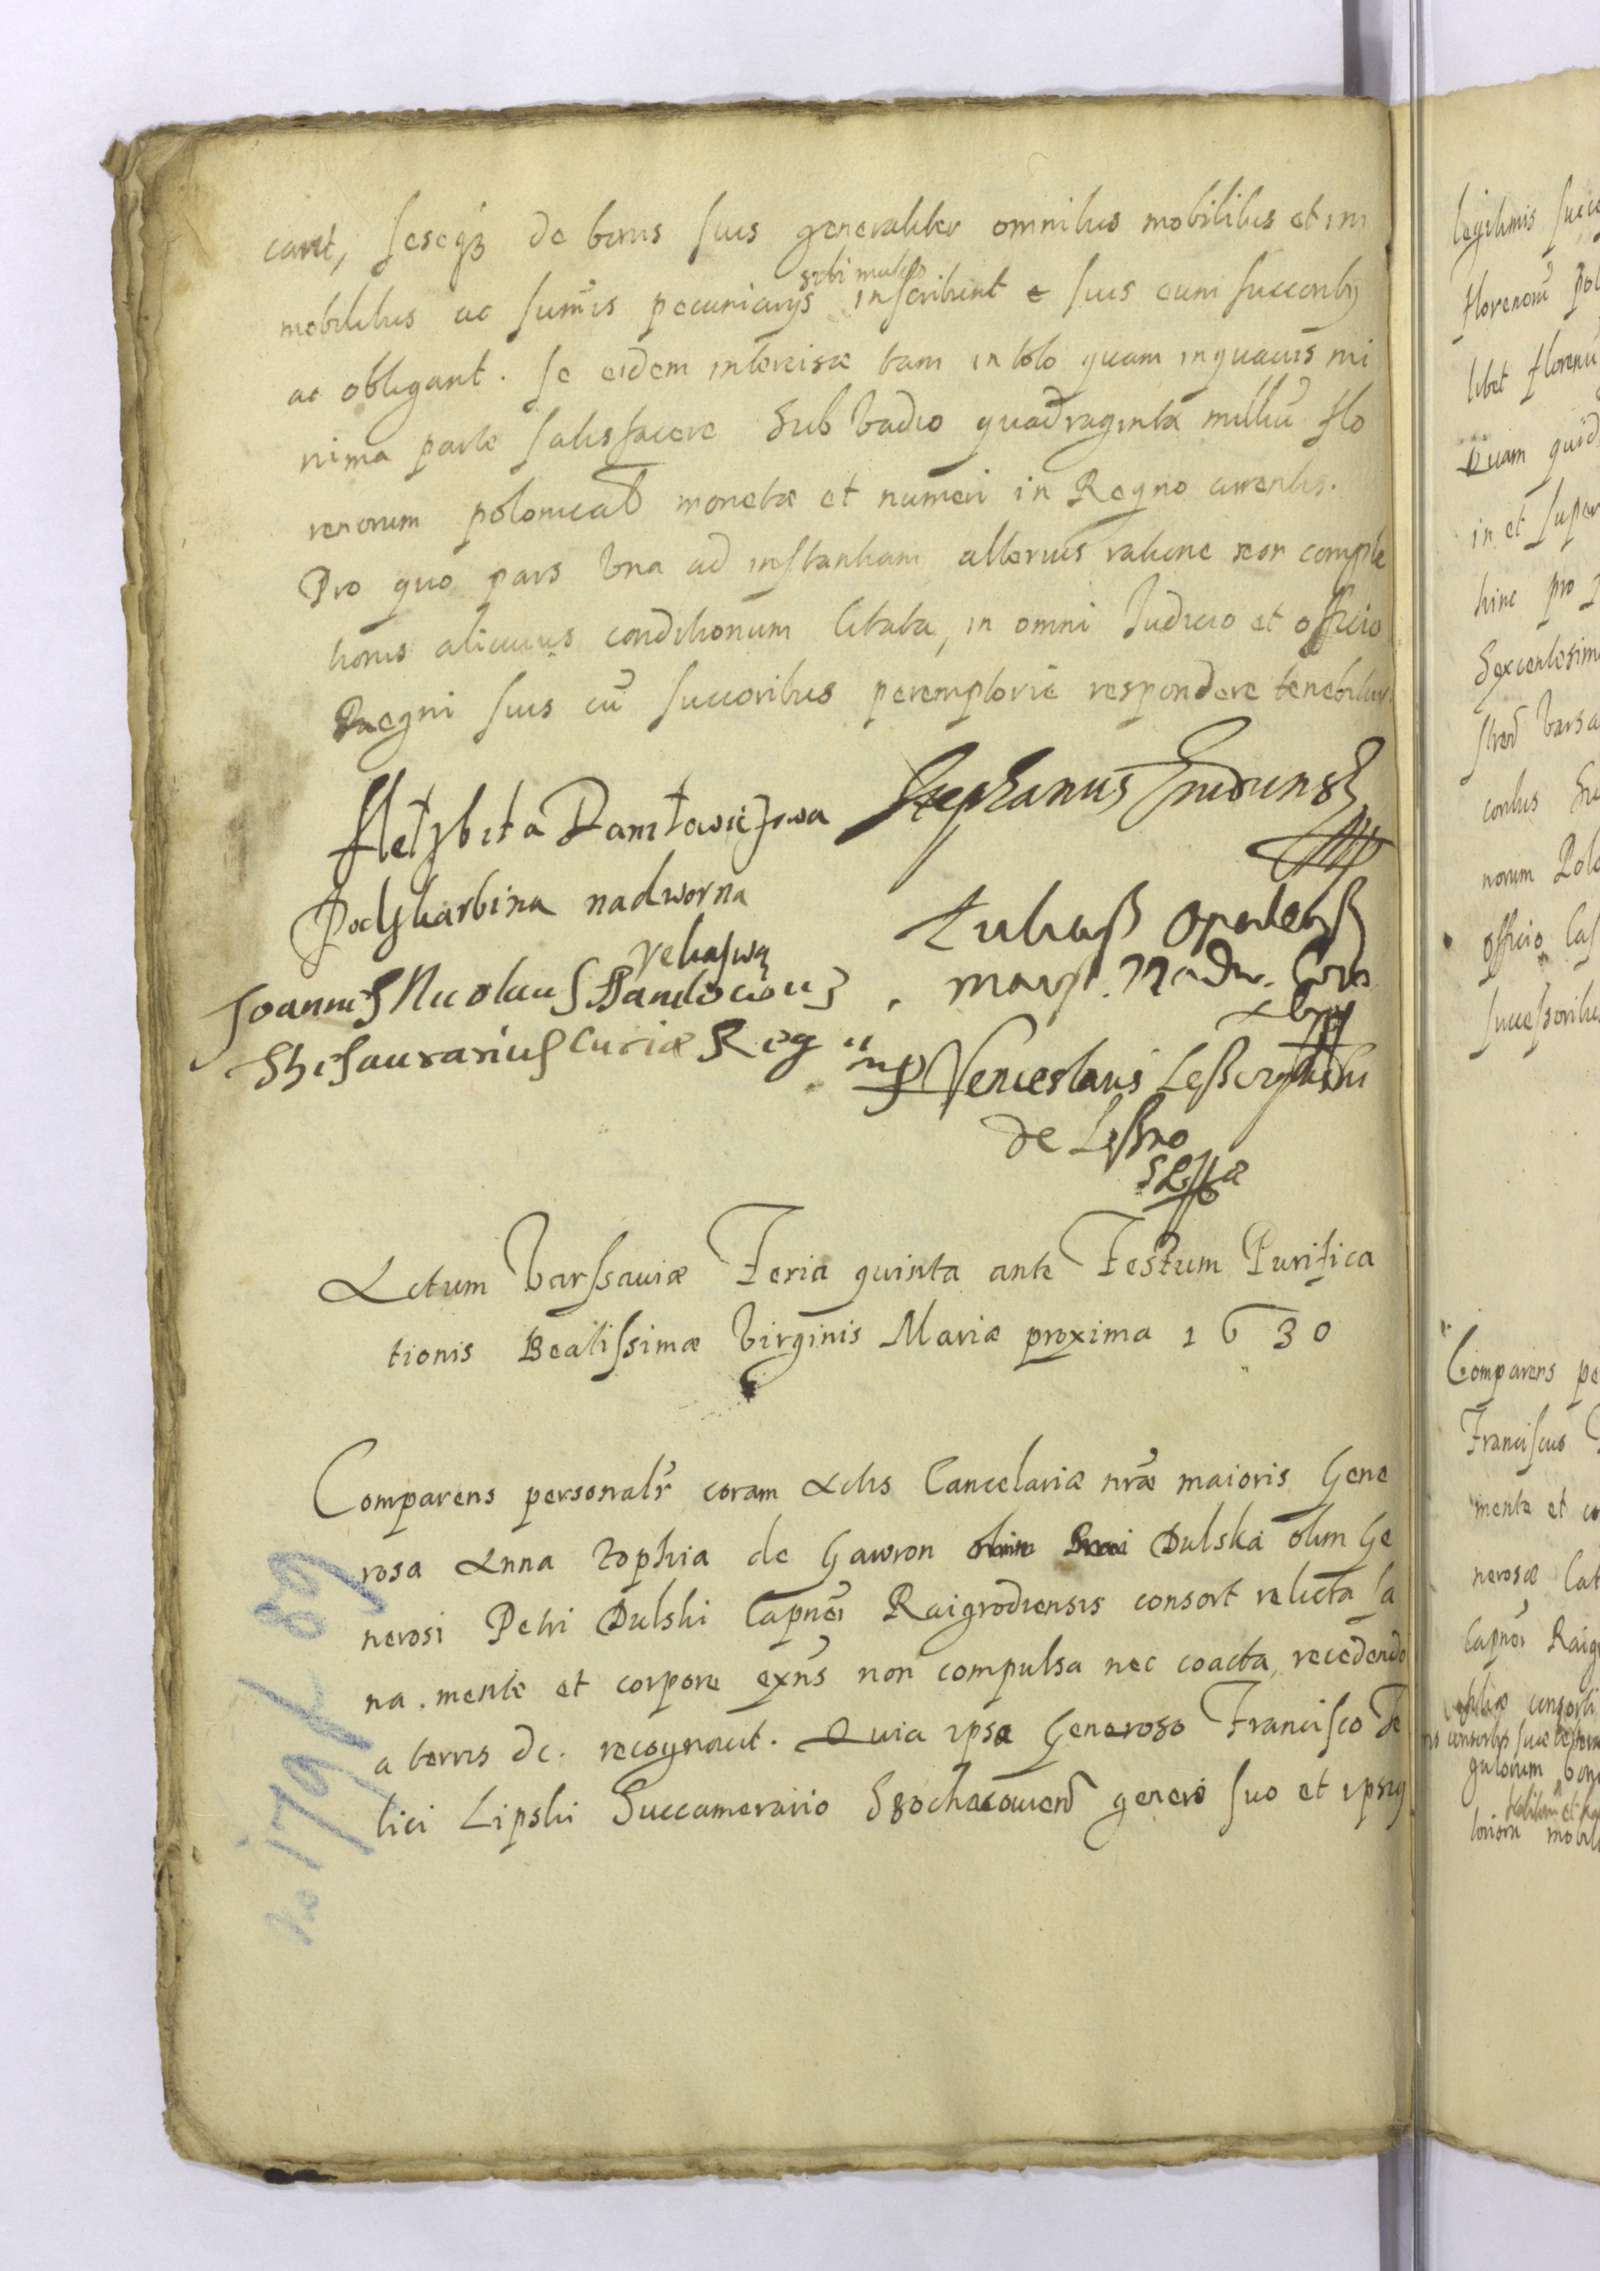 cant, seseqз de bonis suis generaliter omnibus mobilibus et im
mobilibus ac sumis pecuniarijs sibi mutuo inscribunt e suis cum succoribus
ac obligant. Se eidem intercisæ tam in toto quam in quavis mi
nima parte satisfacere Sub Vadio quadraginta milliu flo
renorum polonical monetæ et numeri in Regno currentis.
Pro quo pars Vna ad instantiam alterius ratione non comple
tionis alicuius conditionum citata, in omni Judicio et officio
Regni suis cu succoribus peremptorie respondere tenebitur.
Helzbieta Daniłowiczowa
Podskarbina nadworna
ręką swą
Stephanus
Joannes Nicolaus Daniłowicz
Thesaurarius Curiæ Reg
Łukasz Opalensk
Mars. Nadw. Coro
Venceslaus Lesczynski
de Leszno
Actum Varssaviæ Feria quinta ante Festum Purifica
tionis Beatissimæ Virginis Mariæ proxima 1630
Comparens personalr coram Actis Cancelariæ nræ maioris Gene
rosa Anna Zophia de Gawron Dulska olim Ge
nerosi Petri Dulski Capnei Raigrodiensis consort relicta sa
na mente et corpore exns non compulsa nec coacta, recedendo
a terris &c. recognovit. Quia ipsa Generoso Francisco Fe
lici Lipski Succamerario Sochacoviens genero suo et ipsius
No 179 f. 89
legitimis succe
florenoru pol
libet florenu
Quam quid
in et super
hinc pro
Sexcentesimo
norum Polo
officio Cas
successoribus
Comparens pe
Franciscus
mente et co
nerosæ Cat
Capnei Raig
gulorum bon